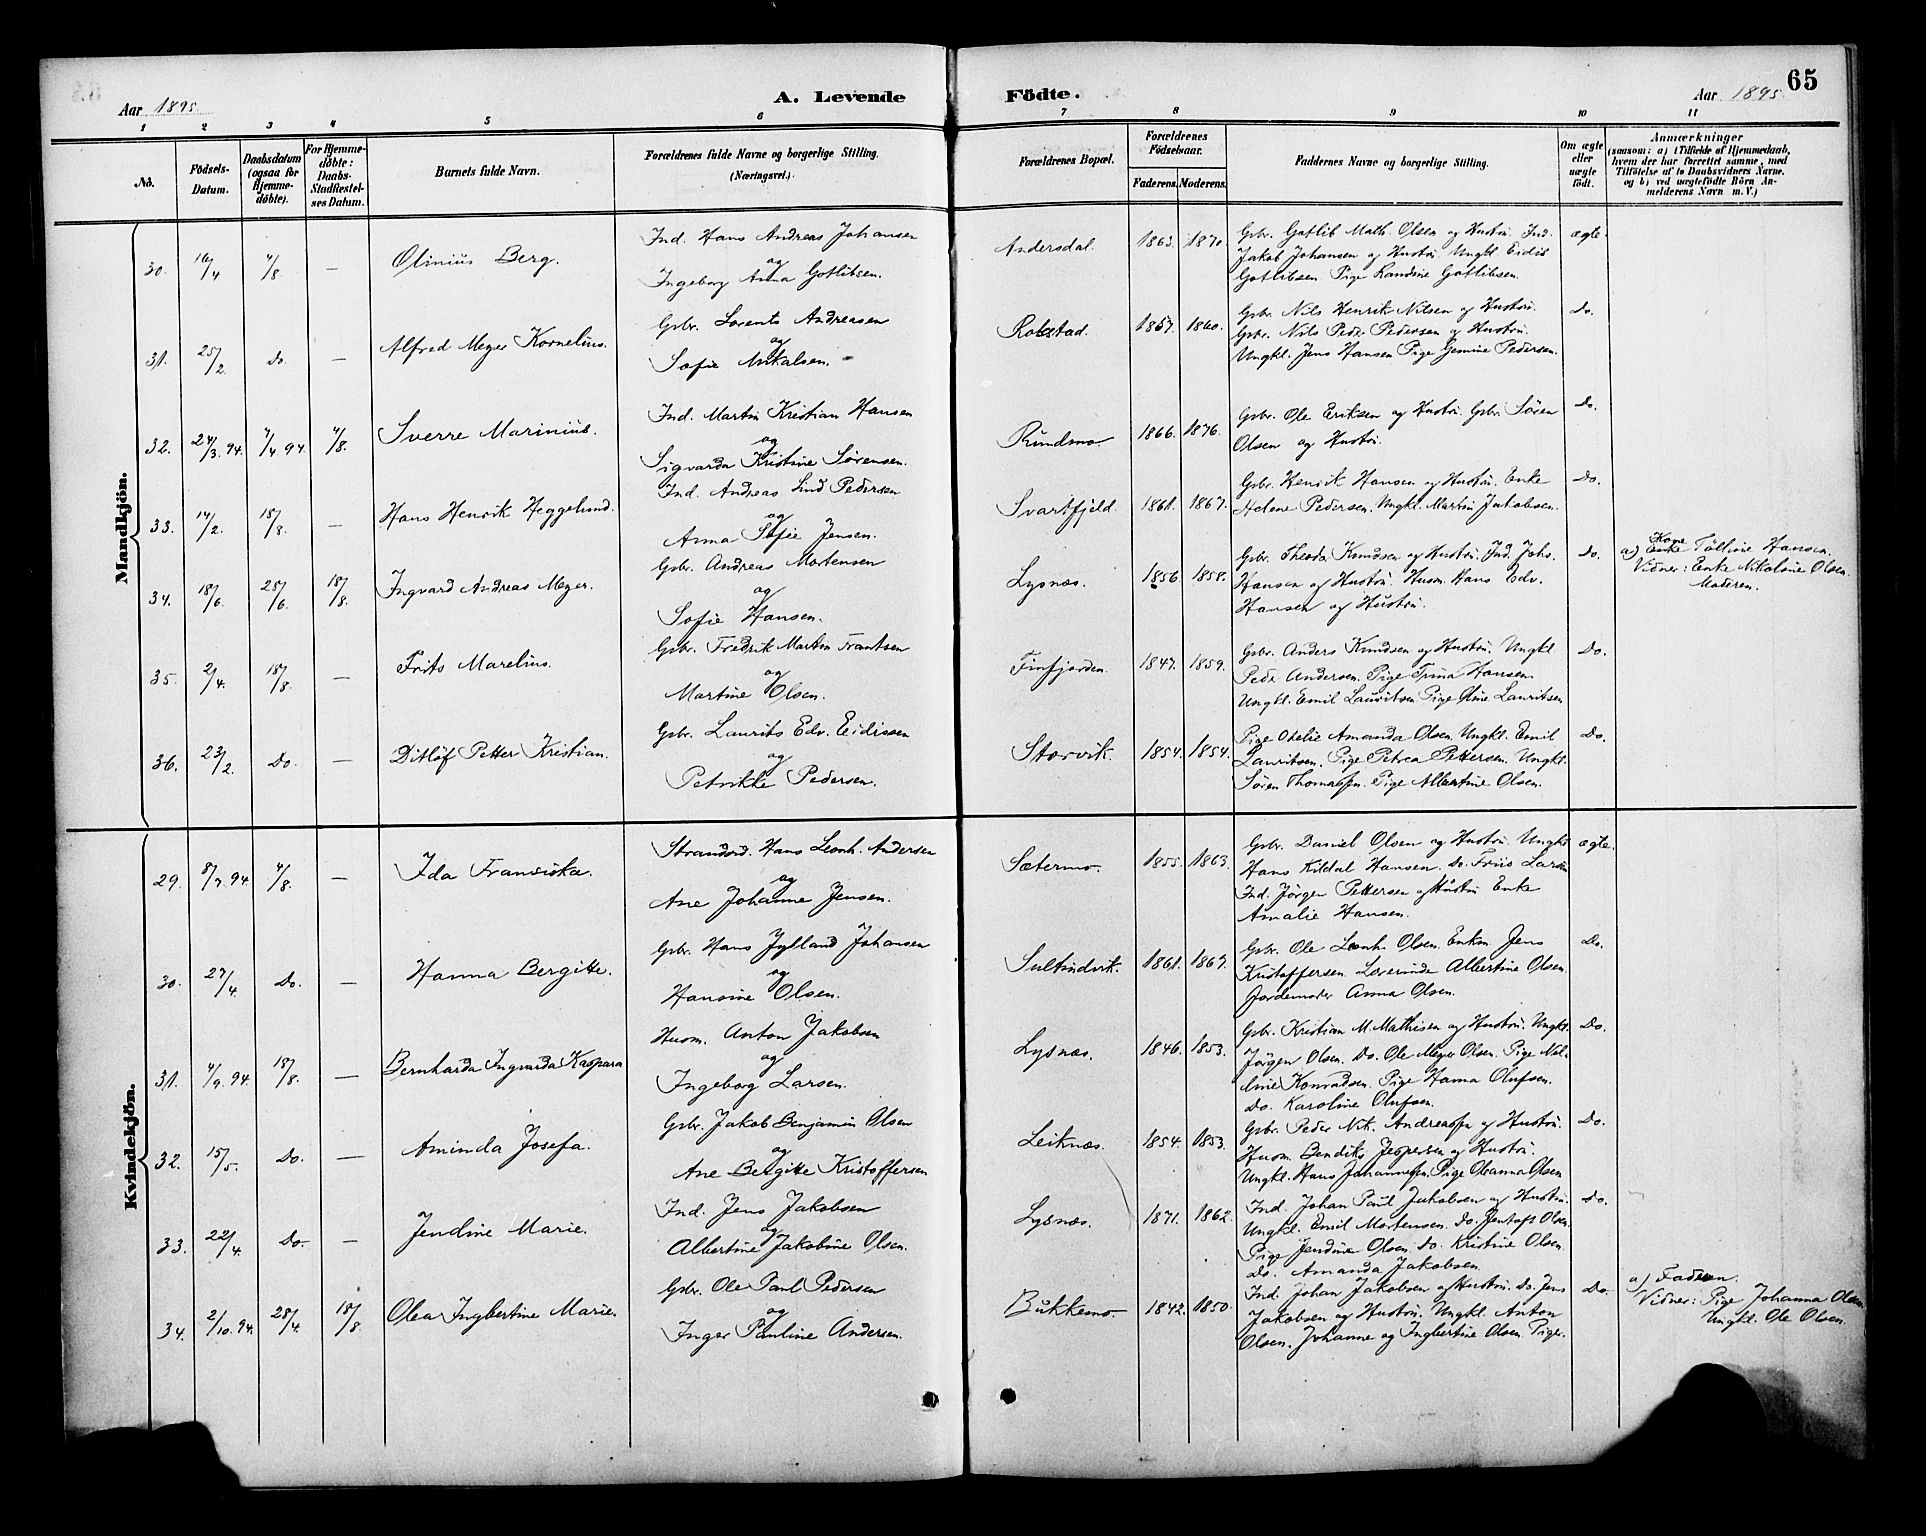 65
Aar 1895. A. Levende Födte. Aar 1895.
1 2 3 4 5 6 7 8 9 10 11
No.
Födsels-
Datum.
Daabsdatum
(ogsaa for
Hjemme-
døbte).
For Hjemme-
døbte:
Daabs-
Stadfæstel-
ses Datum.
Barnets fulde Navn.
Forældrenes fulde Navne og borgerlige Stilling.
(Næringsvei.)
Forældrenes Bopæl.
Forældrenes
Födselsaar.
Faderens. Moderens.
Faddernes Navne og borgerlige Stilling.
Om ægte
eller
uægte
født.
Anmærkninger
(saasom: a) i Tilfælde af Hjemmedaab,
hvem der har forrettet samme, med
Tilföielse af to Daabsvidners Navne,
og b) ved uægtefødte Börn An-
melderens Navn m. V.)
Mandkjön.
30. 16/4 4/8 — Olinius Berg.
Ind. Hans Andreas Johansen
og
Ingeborg Anna Gotlibsen.
Andersdal. 1863. 1870.
Gbr. Gotlib Math. Olsen og Hustru. Ind.
Jakob Johansen og Hustru. Ungkl. Eidis
Gotlibsen Pige Randine Gotlibsen.
ægte.
31. 25/2. Do. — Alfred Meyer Kornelius.
Gbr. Lorents Andreasen
og
Sofie Mikalsen.
Rolstad. 1857. 1860.
Gbr. Nils Henrik Nilsen og Hustru.
Gbr. Nils Peder Pedersen og Hustru.
Ungkl. Jens Hansen Pige Gemine Pedersen.
Do.
32. 24/3.94. 4/4 94. 4/8. Sverre Marinius.
Ind. Martin Kristian Hansen
og
Sigvarda Kristine Sørensen.
Rundmo 1866. 1876.
Gbr. Ole Eriksen og Hustru. Gbr. Sören
Olsen og Hustru.
Do.
33. 14/2. 18/8. — Hans Henrik Heggelund.
Ind. Andreas Lind Pedersen
og
Anna Sofie Jensen.
Svartfjeld. 1861. 1867.
Gbr. Henrik Hansen og Hustru. Enke
Helene Pedersen. Ungkl. Martin Jakobsen.
Do.
34. 18/6. 28/6. 18/8. Ingvard Andreas Meyer.
Gbr. Andreas Mortensen
og
Sofie Hansen.
Lysnæs. 1856. 1858.
Gbr. Theodor Knudsen og Hustru. Ind. Johs.
Hansen og Hustru. Husm. Hans Edv.
Hansen og Hustru.
Do.
Kone
a) Enke Tölline Hansen.
Vidner: Enke Nikoline Olsen.
Moderen.
35. 2/4. 18/8. — Frits Marelius.
Gbr. Fredrik Martin Frantsen
og
Martine Olsen.
Finfjorden. 1847. 1859.
Gbr. Anders Knudsen og Hustru. Ungkl.
Peder Andersen. Pige Trina Hansen.
Ungkl. Emil Lauritsen Pige Oline Lauritsen
Do.
36. 23/2. Do. — Ditlöf Petter Kristian.
Gbr. Laurits Edv. Eidissen
og
Petrikke Pedersen.
Storvik. 1854. 1854.
Pige Otelie Amanda Olsen. Ungkl. Emil
Lauritsen. Pige Petrea Pettersen. Ungkl.
Sören Thomassen. Pige Albertine Olsen.
Do.
Kvindekjön.
29. 8/7.94. 4/8. — Ida Fransiska.
Strandsid. Hans Leonh. Andersen
og
Ane Johanne Jensen.
Sætermo. 1855. 1863.
Gbr. Daniel Olsen og Hustru. Ungkl.
Hans Kildal Hansen. Do. Friis Larsen
Ind. Jörgen Pettersen og Hustru Enke
Amalie Hansen.
ægte.
30. 27/4. Do. — Hanna Bergitte.
Gbr. Hans Jylland Johansen
og
Hansine Olsen.
Sultindvik. 1861. 1867.
Gbr. Ole Leonh. Olsen. Enkm. Jens
Kristoffersen. Læerinde Albertine Olsen.
Jordemoder Anna Olsen.
Do.
31. 4/9.94. 18/8. — Bernharda Ingvarda Kaspara
Husm. Anton Jakobsen
og
Ingeborg Larsen.
Lysnæs. 1846. 1853.
Gbr. Kristian M. Mathisen og Hustru. Ungkl.
Jörgen Olsen. Do. Ole Meyer Olsen. Pige Nel-
line Konradsen. Pige Hanna Olufsen.
Do. Karoline Olufsen.
Do.
32. 15/5. Do. — Aminda Josefa.
Gbr. Jakob Benjamin Olsen
og
Ane Bergitte Kristoffersen
Leiknæs. 1854. 1853.
Gbr. Peder Nik. Andreassen og Hustru.
Husm. Bendiks Jespersen og Hustru.
Ungkl. Hans Johannessen. Pige Oleanna Olsen
Do.
33. 22/4. Do. — Jendine Marie.
Ind. Jens Jakobsen
og
Albertine Jakobine Olsen.
Lysnæs. 1871. 1862.
Ind. Johan Paul Jakobsen og Hustru.
Ungkl. Emil Mortensen. Do. Jentoft Olsen.
Pige Jendine Olsen. Do. Kristine Olsen.
Do. Amanda Jakobsen.
Do.
34. 2/10.94. 28/4. 18/8. Olea Ingbertine Marie.
Gbr. Ole Paul Pedersen
og
Inger Pauline Andersen.
Bukkemo. 1842. 1850.
Ind. Johan Jakobsen og Hustru. Do. Jens
Jakobsen og Hustru. Ungkl. Anton
Olsen. Johanne og Ingbertine Olsen. Piger.
Do.
a) Faderen.
Vidner: Pige Johanna Olsen
Ungkl. Ole Olsen.